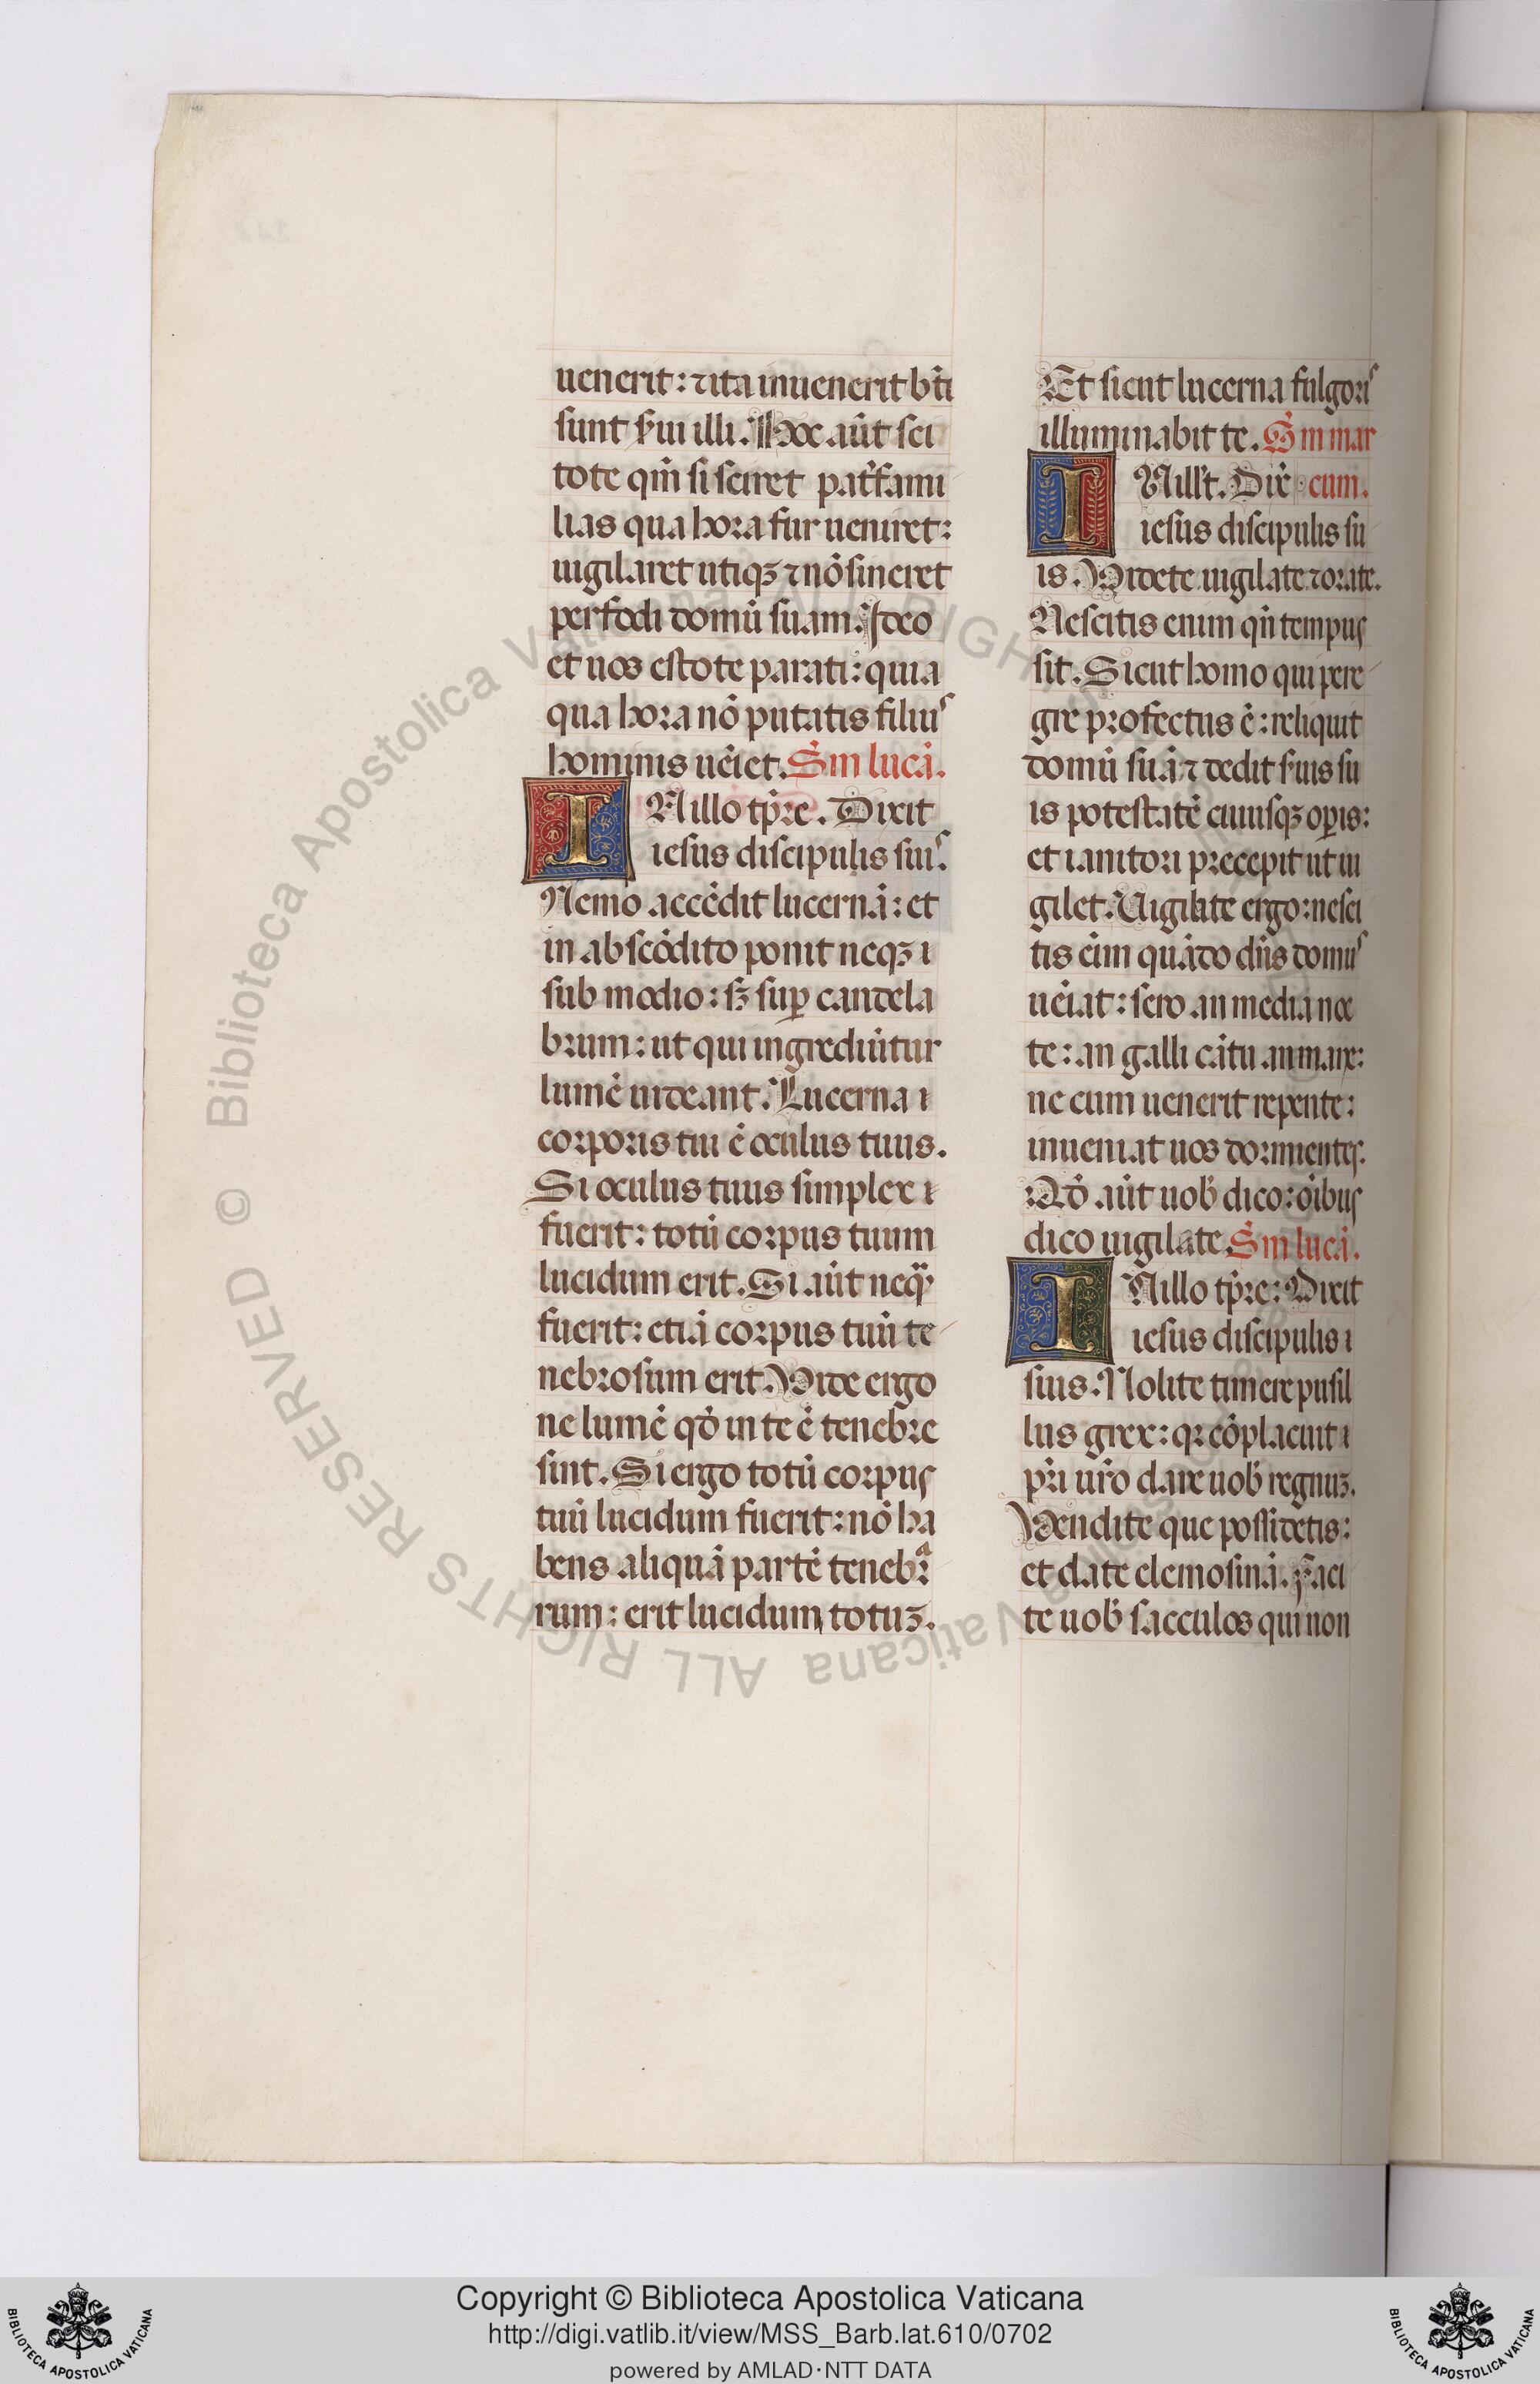 uenerit: ⁊ ita inuenerit bt̄i
sunt s̄ui illi. Hoc aūt sci
tote qm̄ si sciret pat̄fami
lias qua hora fur ueniret:
uigilaret utiqꝫ ⁊ nō sineret
perfodi domū suam. Ideo
et uos estote parati: quia
qua hora nō putatis filius
hominis uēiet. Sm lucā.
IN illo tp̄re. Dixit
iesus discipulis suis.
Nemo accēdit lucernā: et
in abscōdito ponit neqꝫ i
sub modio: sꝫ suꝑ candela
brum: ut qui ingrediūtur
lumē uideant. Lucerna i
corporis tui ē oculus tuus.
Si oculus tuus simplex i
fuerit: totū corpus tuum
lucidum erit. Si aūt neq̄
fuerit: etiā corpus tuū te
nebrosum erit. Vide ergo
ne lumē qd̄ in te ē tenebre
sint. Si ergo totū corpus
tuū lucidum fuerit: nō ha
bens aliquā partē tenebra
rum: erit lucidum totuꝫ.
Et sicut lucerna fulgoris
illuminabit te. Sm mar
IN ill't. Dix̄ cum.
iesus discipulis su
is. Videte uigilate ⁊ orate.
Nescitis enim qn̄ tempus
sit. Sicut homo qui pere
gre profectus ē: reliquit
domū suā ⁊ dedit s̄uis su
is potestatē cuiusqꝫ oꝑis:
et ianitori precepit ut ui
gilet. Uigilate ergo: nesci
tis eīm quādo dn̄s domus
uēiat: sero an media noc
te: an galli cātu an mane:
ne cum uenerit repente:
inueniat uos dormientes.
Qd̄ aūt uob̄ dico: oībus
dico uigilate. Sm lucā.
IN illo tp̄re: Dixit
iesus discipulis i
suis. Nolite timere pusil
lus grex: qꝛ cōplacuit i
pr̄i ur̄o dare uob̄ regnuꝫ.
Vendite que possidetis:
et date elemosinā. Faci
te uob̄ sacculos qui non
© Biblioteca Apostolica Vaticana ALL RIGHTS RESERVED
Copyright © Biblioteca Apostolica Vaticana
http://digi.vatlib.it/view/MSS_Barb.lat.610/0702
powered by AMLAD·NTT DATA
BIBLIOTECA APOSTOLICA VATICANA
BIBLIOTECA APOSTOLICA VATICANA